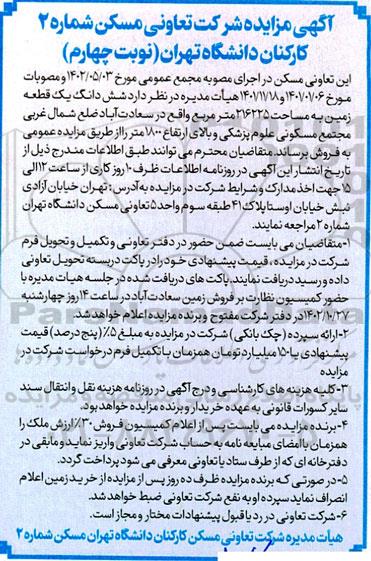 آگهی مزایده شرکت تعاونی مسکن شماره ۲
کارکنان دانشگاه تهران (نوبت چهارم)
این تعاونی مسکن در اجرای مصوبه مجمع عمومی مورخ ۱۴۰۲/۰۵/۰۳ و مصوبات
مورخ ۱۴۰۱/۰۱/۰۶ و ۱۴۰۱/۱۱/۱۸ هیأت مدیره در نظر دارد شش دانگ یک قطعه
زمین به مساحت ۲۱۶۲۲۵ متر مربع واقع در سعادت‌آباد ضلع شمال غربی
مجتمع مسکونی علوم پزشکی و بالای ارتفاع ۱۸۰۰ متر را از طریق مزایده عمومی
به فروش برساند. متقاضیان محترم می توانند طبق اطلاعات مندرج ذیل از
تاریخ انتشار این آگهی در روزنامه اطلاعات ظرف ۱۰ روز کاری از ساعت ۱۲ الی
۱۵ جهت اخذ مدارک و شرایط شرکت در مزایده به آدرس: تهران خیابان آزادی
نبش خیابان اوستا پلاک ۴۱ طبقه سوم واحد ۵ تعاونی مسکن دانشگاه تهران
شماره ۲ مراجعه نمایند.
۱-متقاضیان می بایست ضمن حضور در دفتر تعاونی و تکمیل و تحویل فرم
شرکت در مزایده، قیمت پیشنهادی خود را در پاکت دربسته تحویل تعاونی
داده و رسید دریافت نمایند. پاکت های دریافت شده در جلسه هیات مدیره با
حضور کمیسیون نظارت بر فروش زمین سعادت آباد در ساعت ۱۴ روز چهارشنبه
۱۴۰۲/۱۰/۲۷ در دفتر شرکت مفتوح و برنده مزایده اعلام خواهد شد.
۲-ارائه سپرده (چک بانکی) شرکت در مزایده به مبلغ ۵٪ (پنج درصد) قیمت
پیشنهادی یا ۱۵۰ میلیارد تومان همزمان با تکمیل فرم درخواست شرکت در
مزایده
۳-کلیه هزینه های کارشناسی و درج آگهی در روزنامه هزینه نقل و انتقال سند
سایر کسورات قانونی به عهده خریدار و برنده مزایده خواهد بود.
۴-برنده مزایده می بایست پس از اعلام کمیسیون فروش ۳۰٪ ارزش ملک را
همزمان با امضای مبایعه نامه به حساب شرکت تعاونی واریز نماید و مابقی در
دفترخانه ای که از طرف ستاد یا تعاونی معرفی می شود پرداخت گردد.
۵-در صورتی که برنده مزایده ظرف ده روز پس از مزایده از خرید زمین اعلام
انصراف نماید سپرده او به نفع شرکت تعاونی ضبط خواهد شد.
۶-شرکت تعاونی در رد یا قبول پیشنهادات مختار و مجاز است.
هیأت مدیره شرکت تعاونی مسکن کارکنان دانشگاه تهران مسکن شماره ۲